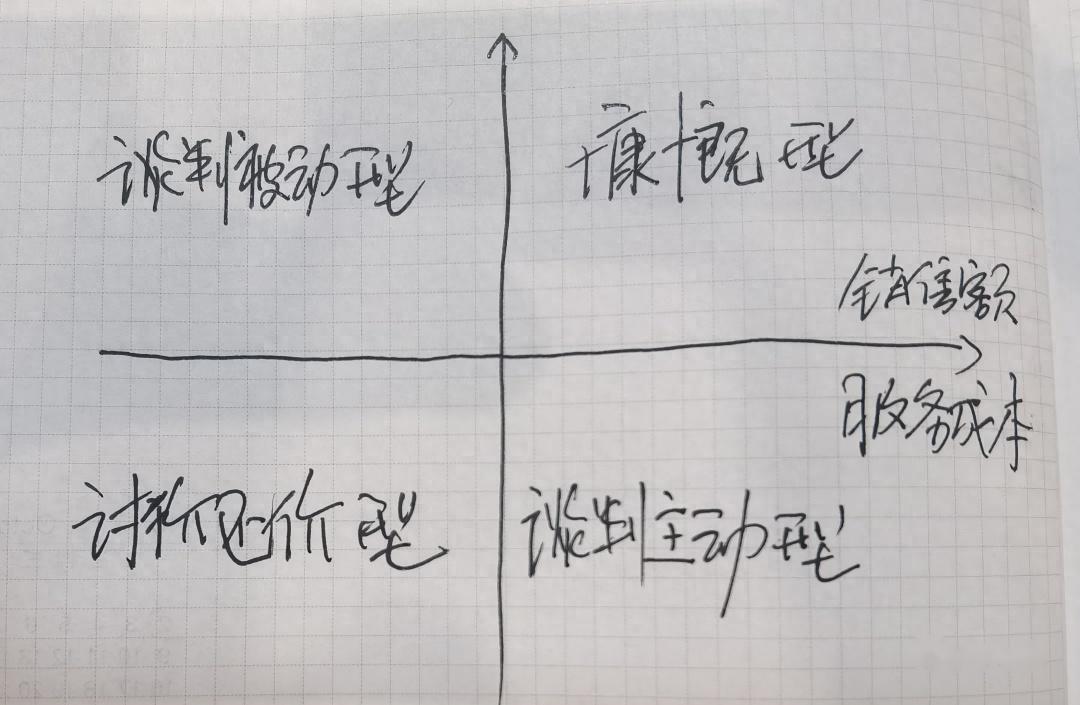 谈判被动型
慷慨型
销售额
服务成本
讨价还价型
谈判主动型